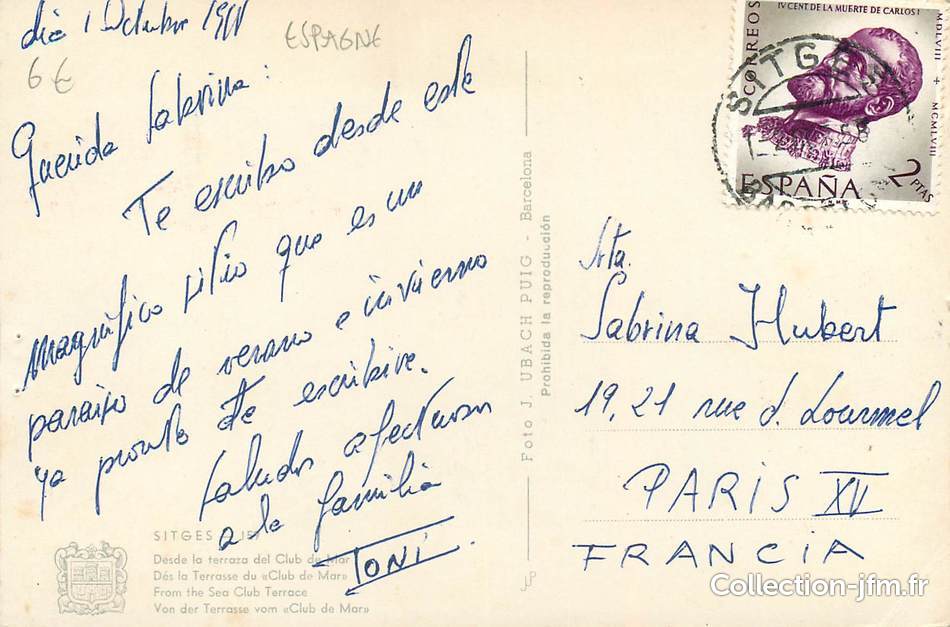 día 1 Octubre
ESPAGNE
6 €
Querida Sabrina:
Te escribo desde este
magnífico sitio que es un
paraiso de verano e invierno
ya pronto te escribiré.
Saludos afectuosos
a la familia
TONI
SITGES
Desde la terraza del Club de Mar
Dés la Terrasse du «Club de Mar»
From the Sea Club Terrace
Von der Terrasse vom «Club de Mar»
Foto J. UBACH PUIG - Barcelona
Prohibida la reproducción
JUP
CORREOS
IV CENT DE LA MUERTE DE CARLOS I
MDLVIII + MCMLVIII
ESPAÑA
2 PTAS
SITGES
Srta.
Sabrina Hubert
19, 21 rue d. Lourmel
PARIS XV
FRANCIA
Collection-jfm.fr